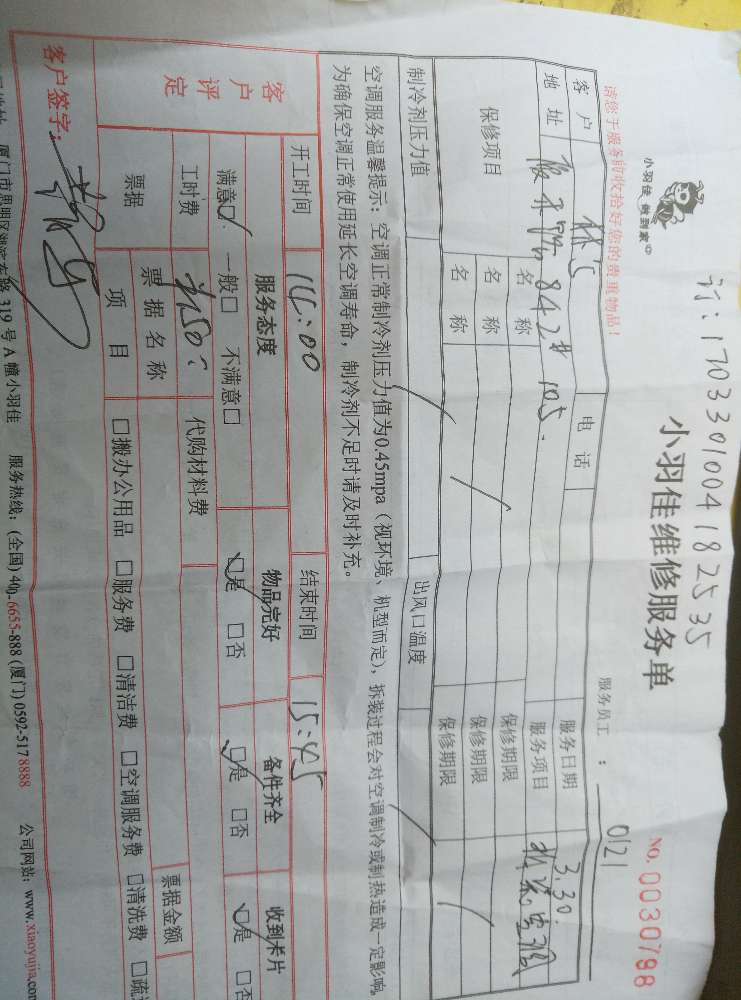 订:1703301004182535
小羽佳 做到家
小羽佳维修服务单
NO. 0030798
请您于服务前收拾好您的贵重物品!
服务员工: 0121
客户 林 电话 服务日期 3.30.
地址 842# 105. 服务项目 拆装空调
保修项目 名称 保修期限
名称 保修期限
名称 保修期限
制冷剂压力值 出风口温度
空调服务温馨提示:空调正常制冷剂压力值为0.45mpa(视环境、机型而定),拆装过程会对空调制冷或制热造成一定影响。
为确保空调正常使用延长空调寿命,制冷剂不足时请及时补充。
开工时间 14:00 结束时间 15:45
客户评定 服务态度 物品完好 备件齐全 收到卡片
满意☑ 一般□ 不满意□ ☑是 □否 ☑是 □否 ☑是 □否
工时费 代购材料费
票据 票据名称 票据金额
项目 □搬办公用品 □服务费 □清洁费 □空调服务费 □清洗费 □疏
客户签字:
319号A幢小羽佳 服务热线:(全国)400-6655-888 (厦门)0592-5178888 公司网站:www.xiaoyujia.com